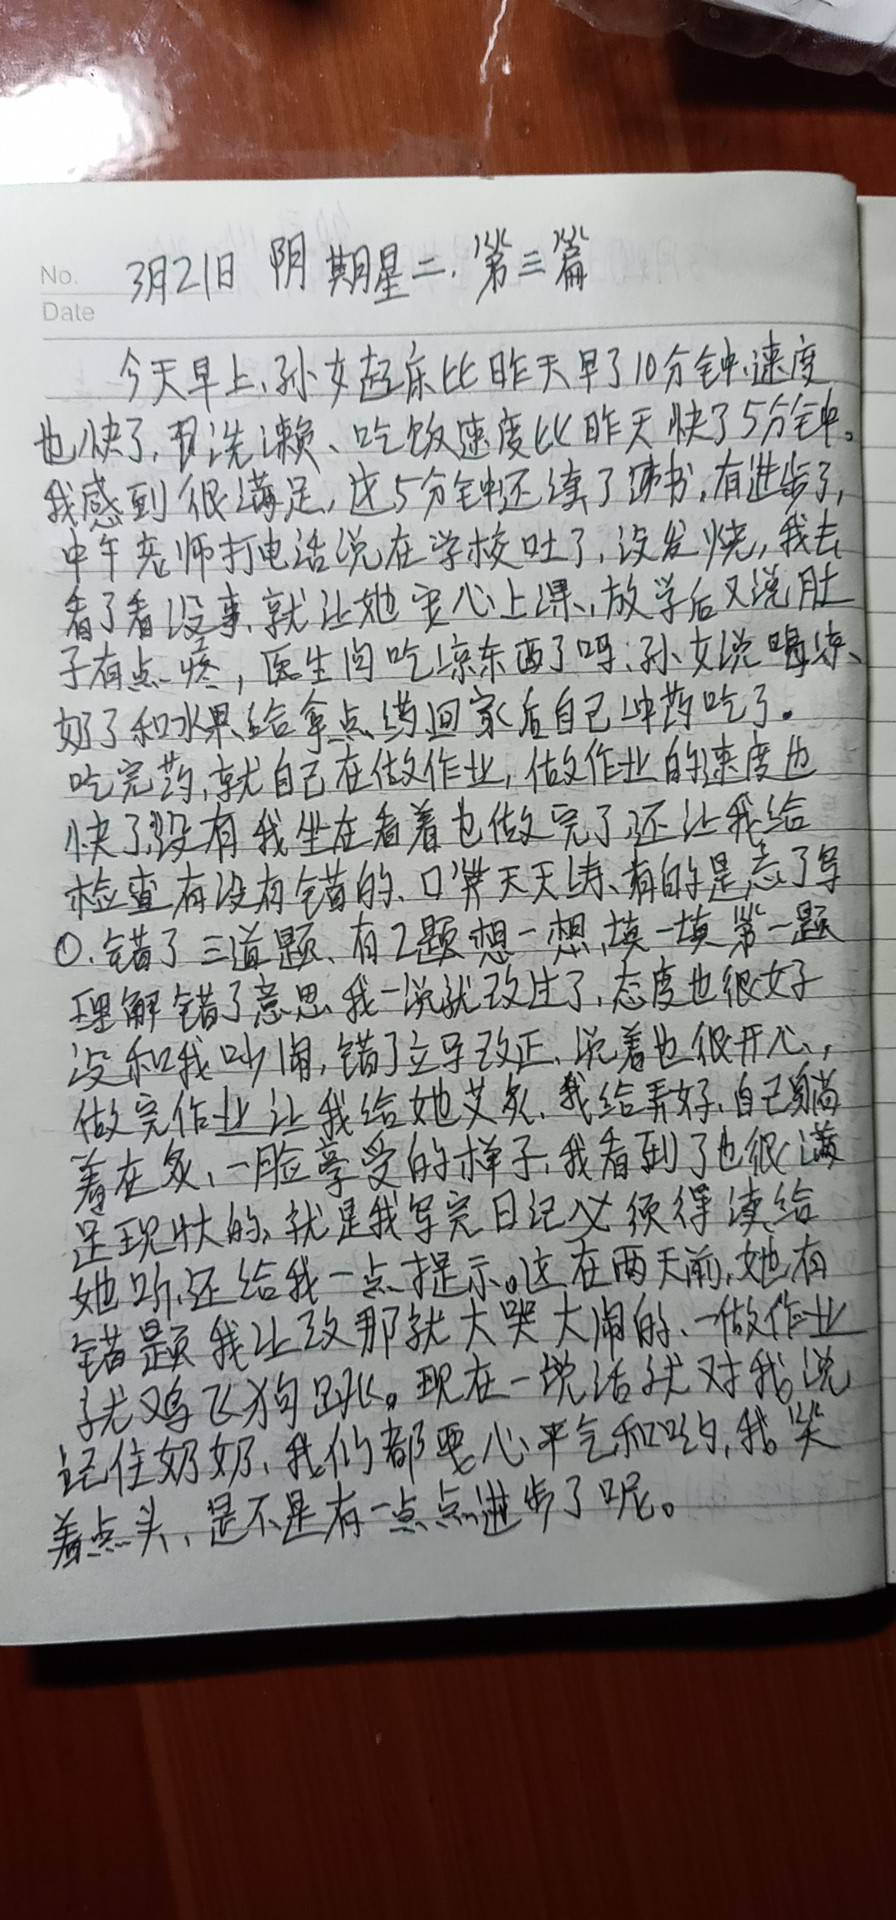 No.
Date
3月21日 阴 期星二. 第三篇
今天早上、孙女起床比昨天早了10分钟、速度
也快了, 洗漱、吃饭速度比昨天快了5分钟。
我感到很满足, 这5分钟还读了读书, 有进步了,
中午老师打电话说在学校吐了, 没发烧, 我去
看了看没事、就让她安心上课、放学后又说肚
子有点疼, 医生问吃凉东西了吗、孙女说喝凉、
奶了和水果、给拿点药回家后自己冲药吃了。
吃完药, 就自己在做作业, 做作业的速度也
快了, 没有我坐在看着也做完了, 还让我给
检查有没有错的、口算天天练、有的是忘了写
0、错了三道题、有2题想一想, 填一填第一题
理解错了意思、我一说就改过了, 态度也很好
没和我吵闹, 错了立马改正、说着也很开心,
做完作业让我给她艾灸、我给弄好、自己躺
着在灸、一脸享受的样子、我看到了也很满
足现状的, 就是我写完日记必须得读给
她听、还给我一点提示。这在两天前, 她有
错题我让改那就大哭大闹的、一做作业
就鸡飞狗跳。现在一说话就对我说
记住奶奶、我们都要心平气和哟, 我笑
着点头、是不是有一点点进步了呢。